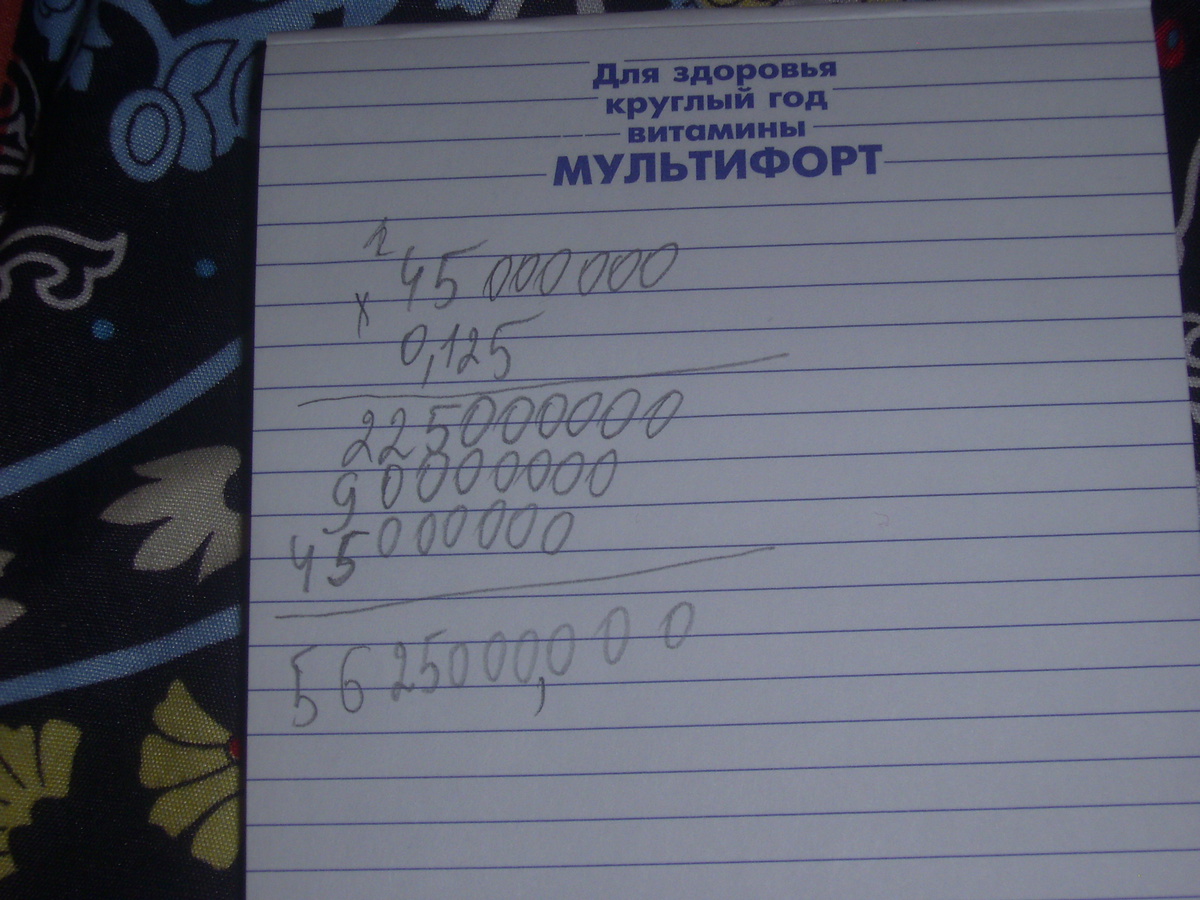 Для здоровья
круглый год
витамины
МУЛЬТИФОРТ
2
45 000 000
x
0,125
225000000
90000000
45000000
5625000,000